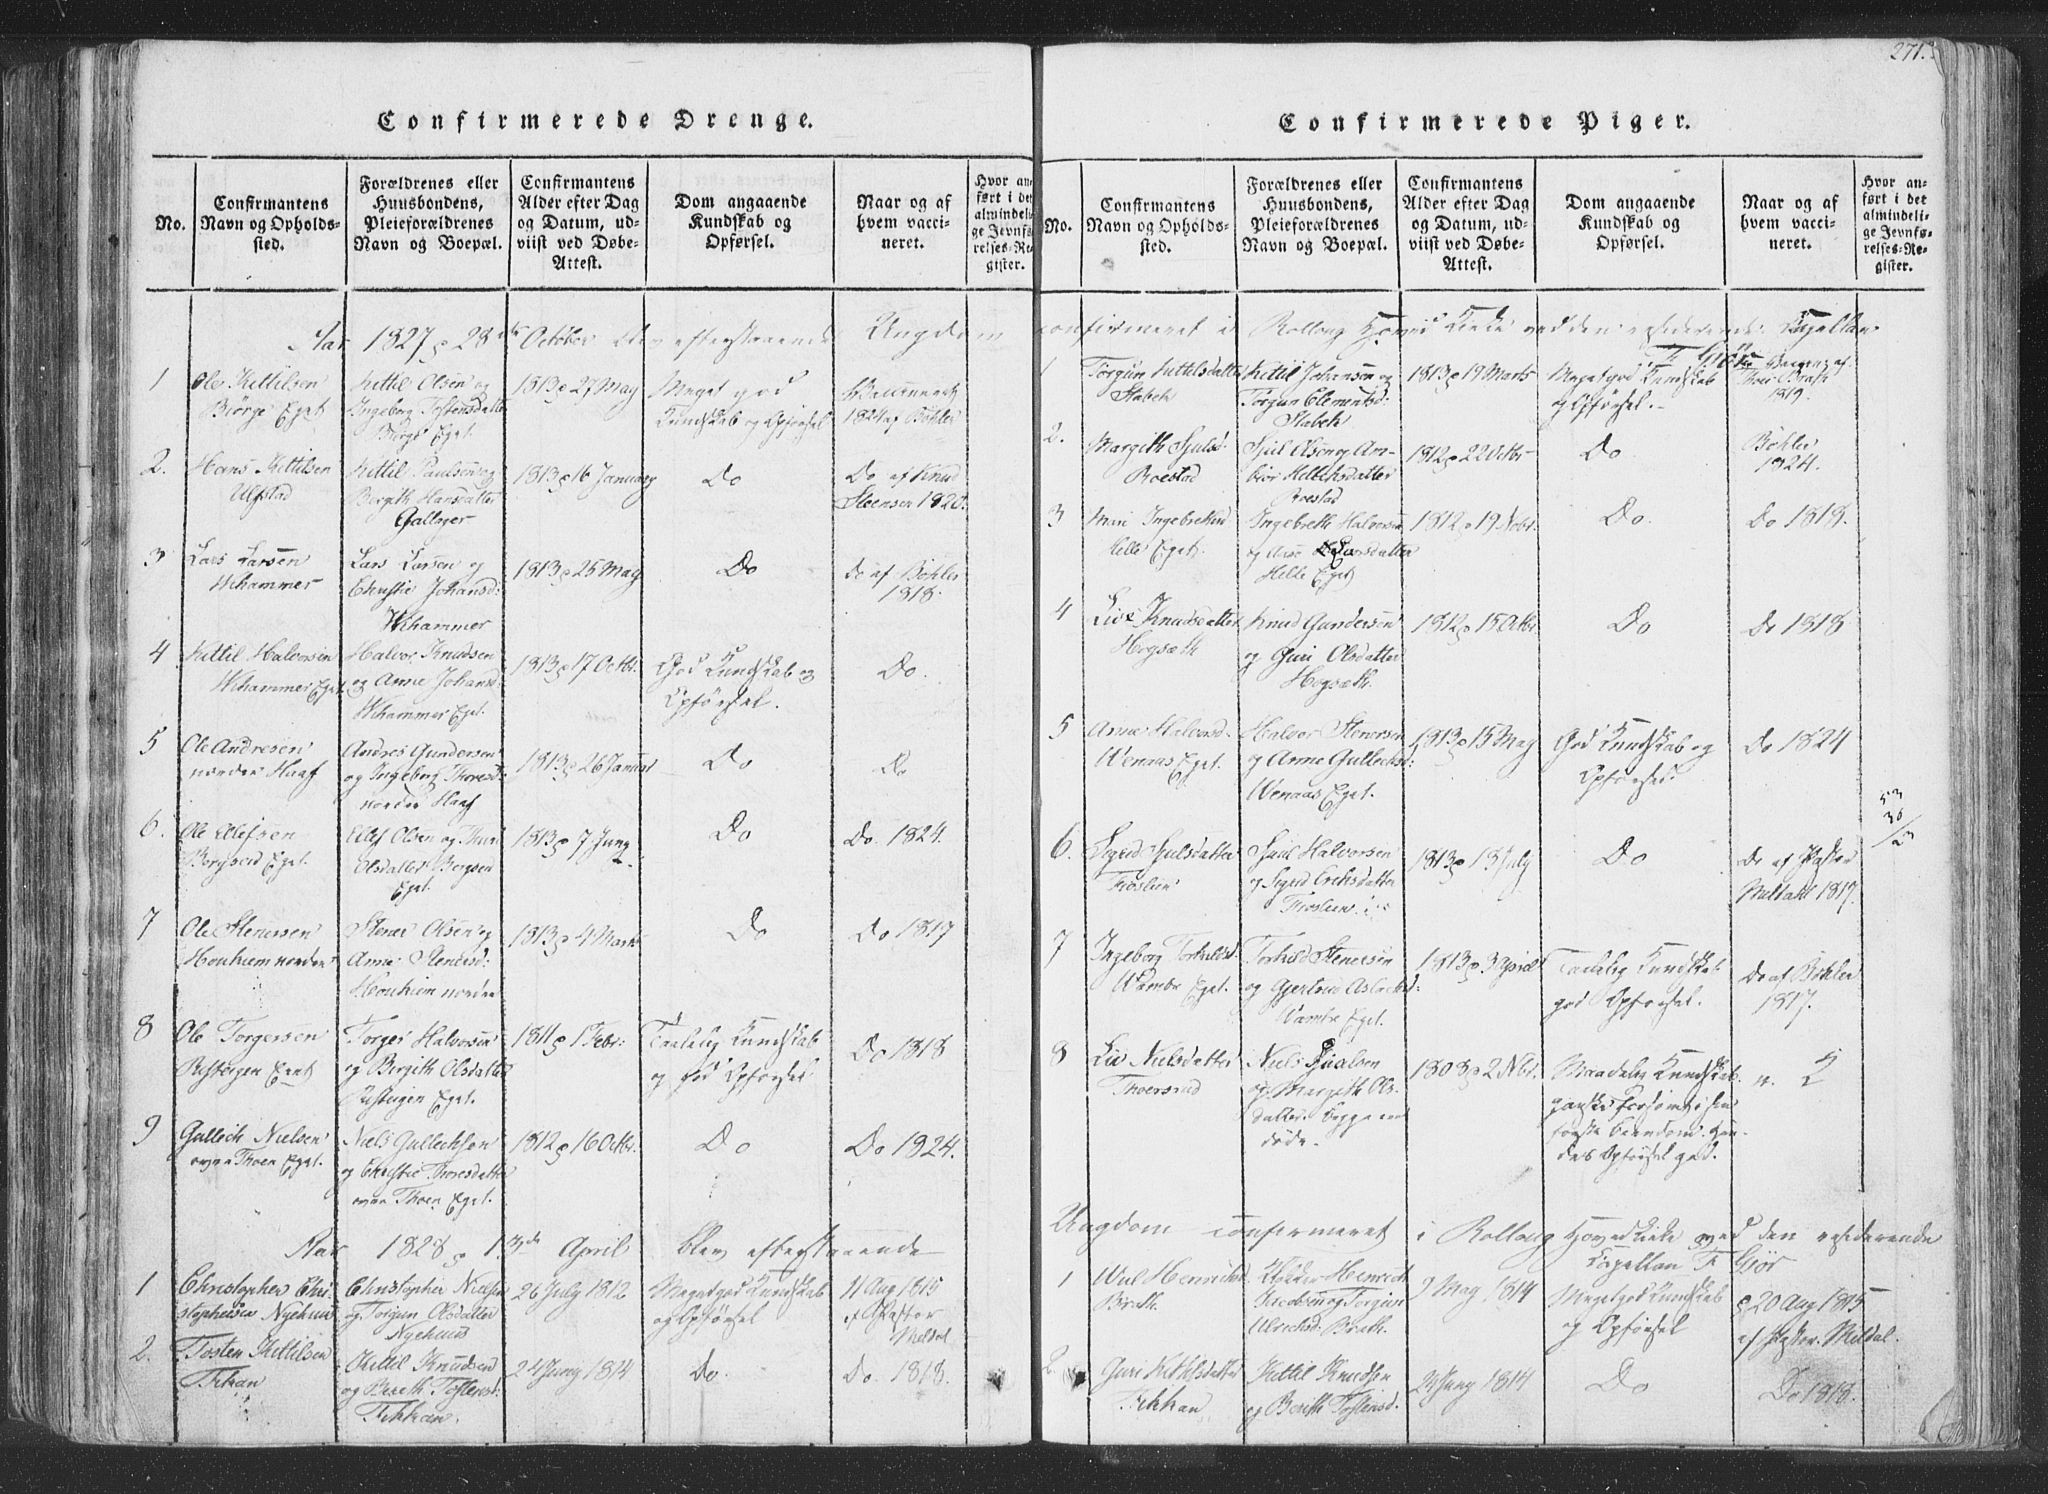 271.
Confirmerede Drenge.
No.
Confirmantens
Navn og Opholds-
sted.
Forældrenes eller
Huusbondens,
Pleieforældrenes
Navn og Boepæl.
Confirmantens
Alder efter Dag
og Datum, ud-
viist ved Døbe-
Attest.
Dom angaaende
Kundskab og
Opførsel.
Naar og af
hvem vacci-
neret.
Hvor an-
ført i det
almindeli-
ge Jevnfø-
relses-Re-
gister.
Aar 1827 28de October blev efterstaaende Ungdom
1
Ole Kittilsen
Biørge Eget
Kittil Olsen og
Ingeborg Tostensdatter
Eget
1813 27 May
Meget god
Kundskab og Opførsel
Vaccineret
1824 af Bøhler
2.
Hans Kittilsen
Ulfstad
Kittil Paulsen og
Birgith Hansdatter
Gallager
1813 16 January
Do
Do af Knud
Steensen 1820
3
Lars Larsen
Wihammer
Lars Larsen og
Christie Johansd:
Wihammer
1813 25 May
Do
Do af Bøhler
1818.
4
Kittil Halvorsen
Wihammer Eget
Halvor Knudsen
og Anne Johansd:
Wihammer Eget.
1813 17 Octbr.
God Kundskab og
Opførsel.
Do.
5
Ole Andresen
nordre Haaf
Andres Gundersen
og Ingeborg Thoresd:
nordre Haaf
1813 26 Januar
Do
Do
6.
Ole Ellefsen
Eget.
Ellef Olsen og
Olsdatter
Eget.
1813 7 Juny
Do
Do. 1824.
7
Ole Stenersen
nordre
Stener Olsen og
Anne Stenersd:
nordre
1813 4 Marts
Do
Do 1817
8
Ole Torgersen
Torger Halvorsen
og Birgith Olsdatter
Eget.
1811 1 Febr:
Taalelig Kundskab
og god Opførsel
Do 1818
9
Gullech Nielsen
over Thoen Eget.
Niels Gullechsen
og Christie Thoresdatter
over Thoen Eget.
1812 16 Octbr.
Do
Do 1824.
Aar 1828 13de April blev efterstaaende
1
Christopher Chri-
stophersen Nyehuus
Christopher Nielsen
og Torgun Olsdatter
Nyehuus
26 July 1812
Meget god Kundskab
og Opførsel
11 Aug 1815
af Pastor
Meldal
2.
Tosten Kittilsen
Kittil Knudsen
og Bereth Tostensd:
24 Juny 1814
Do.
Do. 1818.
Confirmerede Piger.
No.
Confirmantens
Navn og Opholds-
sted.
Forældrenes eller
Huusbondens,
Pleieforældrenes
Navn og Boepæl.
Confirmantens
Alder efter Dag
og Datum, ud-
viist ved Døbe-
Attest.
Dom angaaende
Kundskab og
Opførsel.
Naar og af
hvem vacci-
neret.
Hvor an-
ført i det
almindeli-
ge Jevnfø-
relses-Re-
gister.
confirmeret i Rolloug Hoved Kirke ved den residerende Capellan
F. Giør
1
Torgun Kittilsdatter
Stabek
Kittil Johansen og
Torgun Clementsd:
Stabek
1813 19 Marts
Meget god Kundskab
og Opførsel.
1819.
2.
Margith Sjulsd:
Roestad
Sjul Olsen og Am-
biør
Roestad
1812 22 Octbr
Do
Bøhler
1824.
3
Mari Ingebrethsd
Helle Eget.
Ingebreth Halvorsen
og
Helle Eget
1812 19 Nobr.
Do.
Do 1818.
4
Live Knudsdatter
Hogsæth
Knud Gundersen
og Guri Olsdatter
Hogsæth.
1812 15 Octbr
Do
Do 1818
5
Anne Halvorsd:
Wenaas Eget.
Halvor Stenersen
og Anne Gullechsd:
Wenaas Eget.
1813 15 May
God Kundskab og
Opførsel.
Do 1824
53
36
6.
Sigrid Sjulsdatter
Sjul Halvorsen
og Sigrid Erichsdatter
1813 13 July
Do
Do af Pastor
Meldahl 1817.
7
Ingeborg Torkildsd:
Wambe Eget.
Torkild Stenersen
og Gjertrue Aslachsd:
Wambe Eget.
1813 3 April
Taalelig Kundskab
god Opførsel.
Do af Bøhler
1817.
8
Liv Nielsdatter
Thoersrud
Niels
og Margith Ols-
datter. Begge ere
døde.
1808 2 Nbr.
Maadelig Kundskab.
ganske forsømt i sin
første Barndom. Hen-
des Opførsel god.
Ungdom confirmeret i Rolloug Hovedkirke ved den residerende
Capellan F Giør
1
Henrichsd
Henrich
Jacobsen og Torgun
Ulrichsd:
9 May 1814
Meget god Kundskab
og Opførsel
20 Aug 1815
af Pastor Meldal.
2
Guri Kittilsdatter
Kittil Knudsen
og Berith Tostensd.
24 Juny 1814
Do
Do 1818.